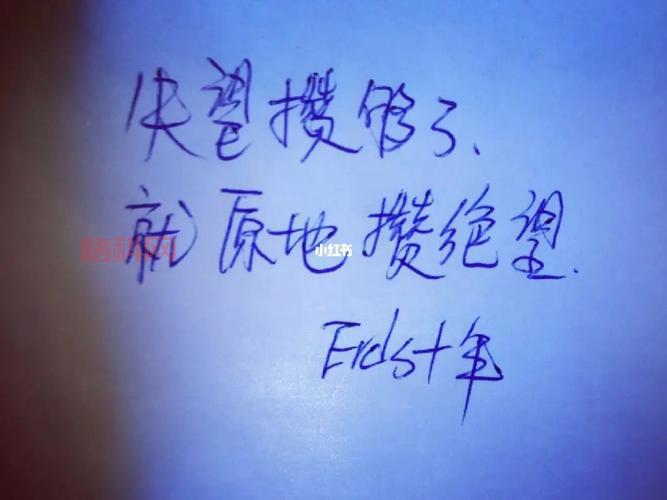 失望攒够了、
就原地攒绝望.
小红书
Erds十年